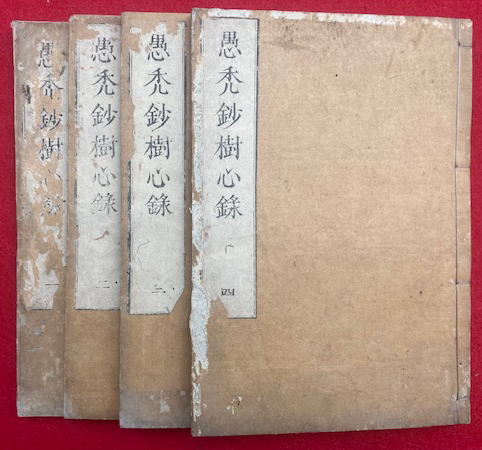 愚禿鈔樹心錄 四
愚禿鈔樹心錄 三
愚禿鈔樹心錄 二
愚禿鈔樹心錄 一